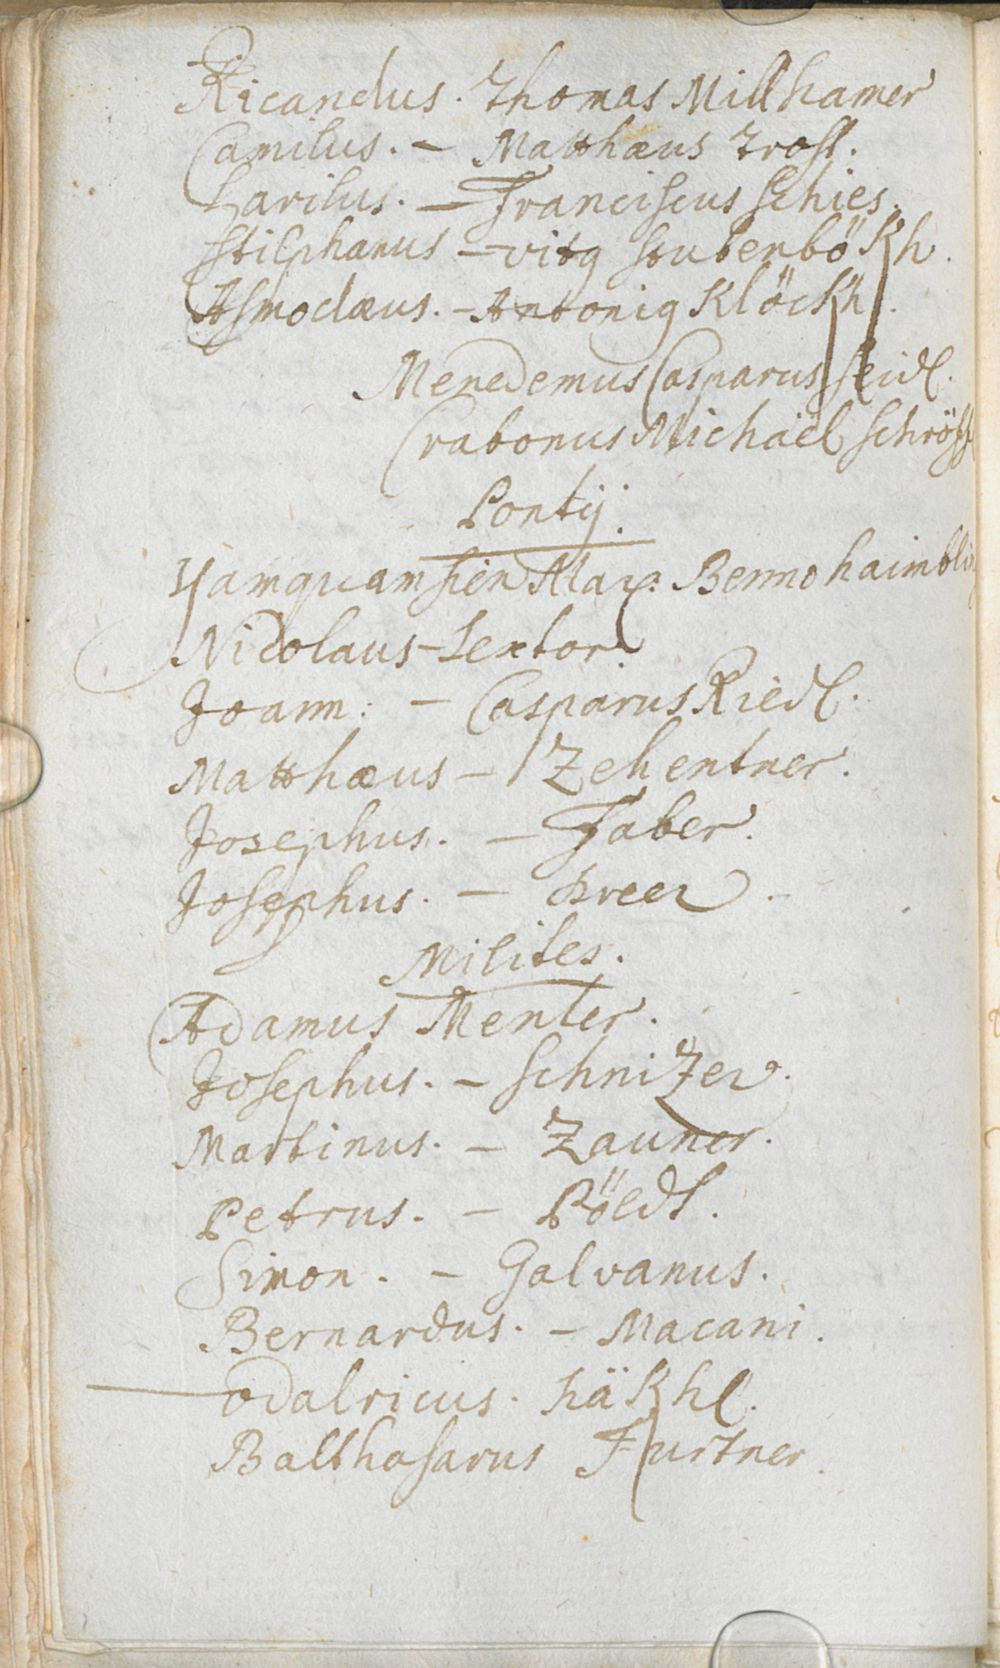 Ricandus. Thomas Millhamer
Camilus. - Matthæus Trost.
Larilus. - Franciscus Schies.
Stilphanus - vitq Stubenbökh.
Asmodæus. - Antoniq Klöckh.
Menedemus Casparus Seidl.
Crabonus Michaël
Pontij.
Benno
Nicolaus - Sextor.
Joann: - Casparus Riedl.
Matthæus - Zehentner.
Josephus. - Faber.
Josephus. - Preez -
Milites.
Adamus Menter.
Josephus. - Schnizer.
Martinus. - Zauner.
Petrus. - Pöedl.
Simon. - Galvanus.
Bernardus. - Macani.
Odalricus. häkhl.
Balthasarus Furtner.